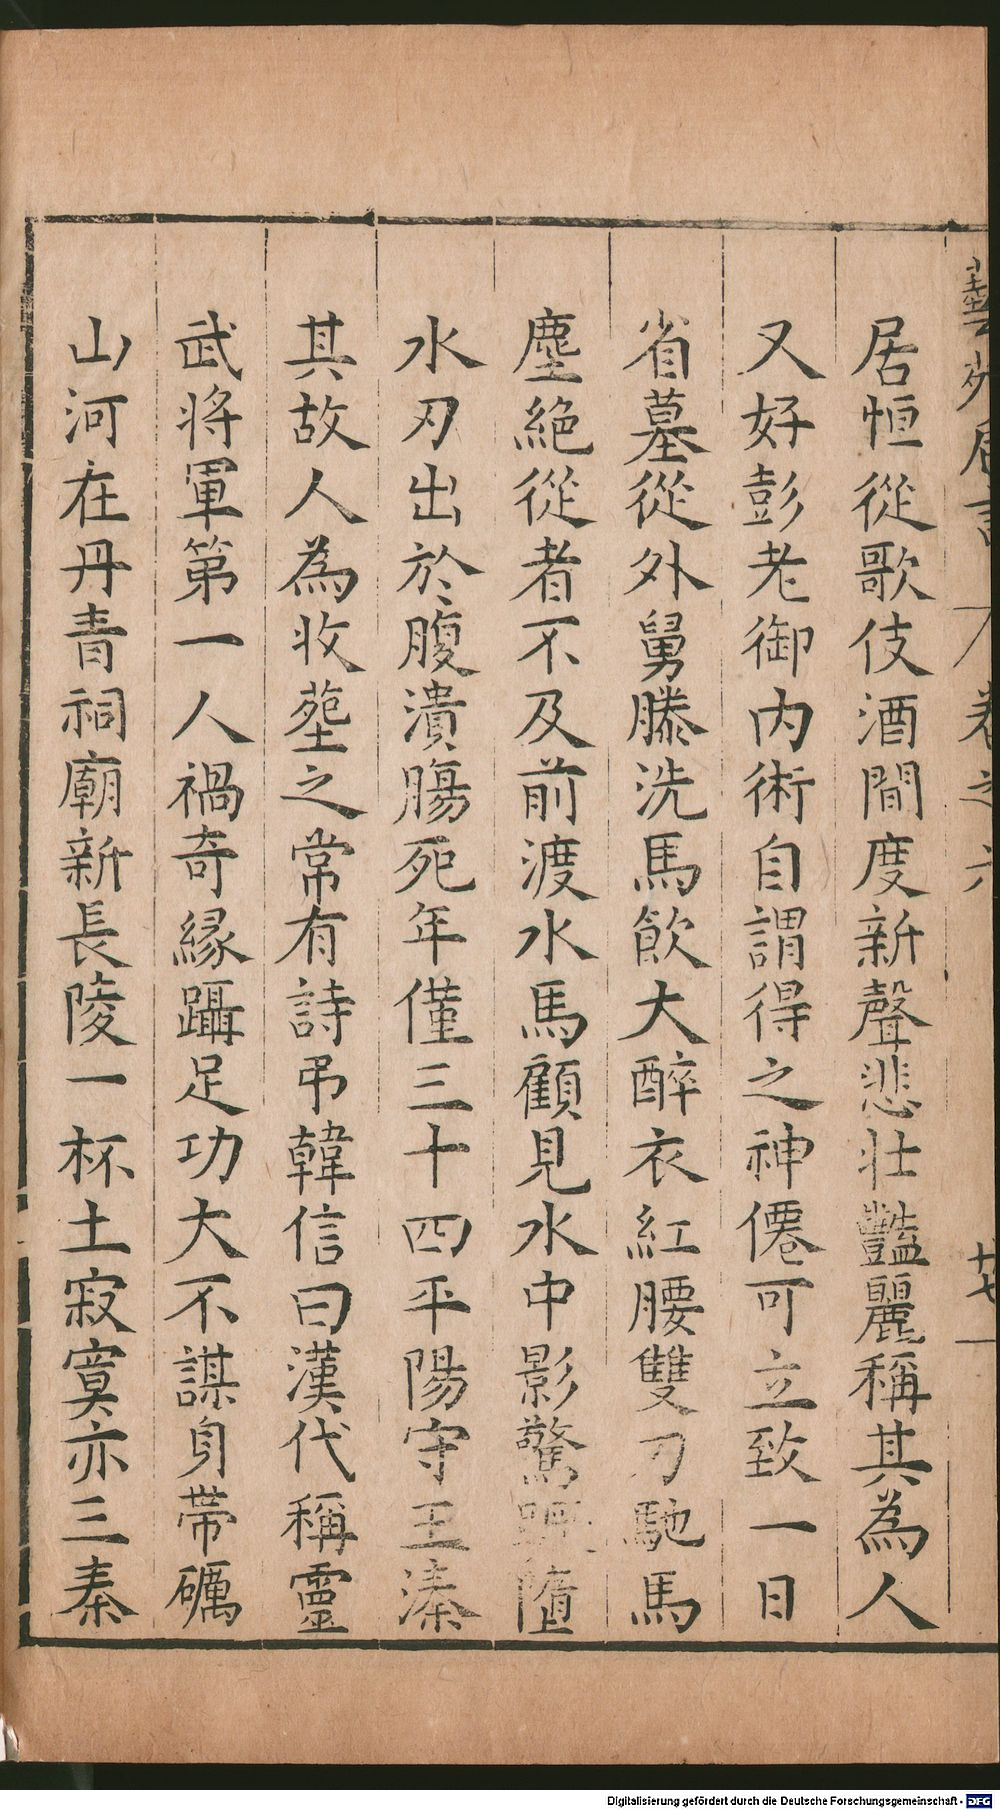 藝苑卮言 卷之六 廿七
居恒從歌伎酒間度新聲悲壯豔麗稱其為人
又好彭老御內術自謂得之神僊可立致一日
省墓從外舅滕洗馬飲大醉衣紅腰雙刀馳馬
塵絕從者不及前渡水馬顧見水中影驚蹶墮
水刃出於腹潰腸死年僅三十四平陽守王溱
其故人為收塟之常有詩弔韓信曰漢代稱靈
武將軍第一人禍奇緣躡足功大不謀身帶礪
山河在丹青祠廟新長陵一杯土寂寞亦三秦
Digitalisierung gefördert durch die Deutsche Forschungsgemeinschaft - DFG